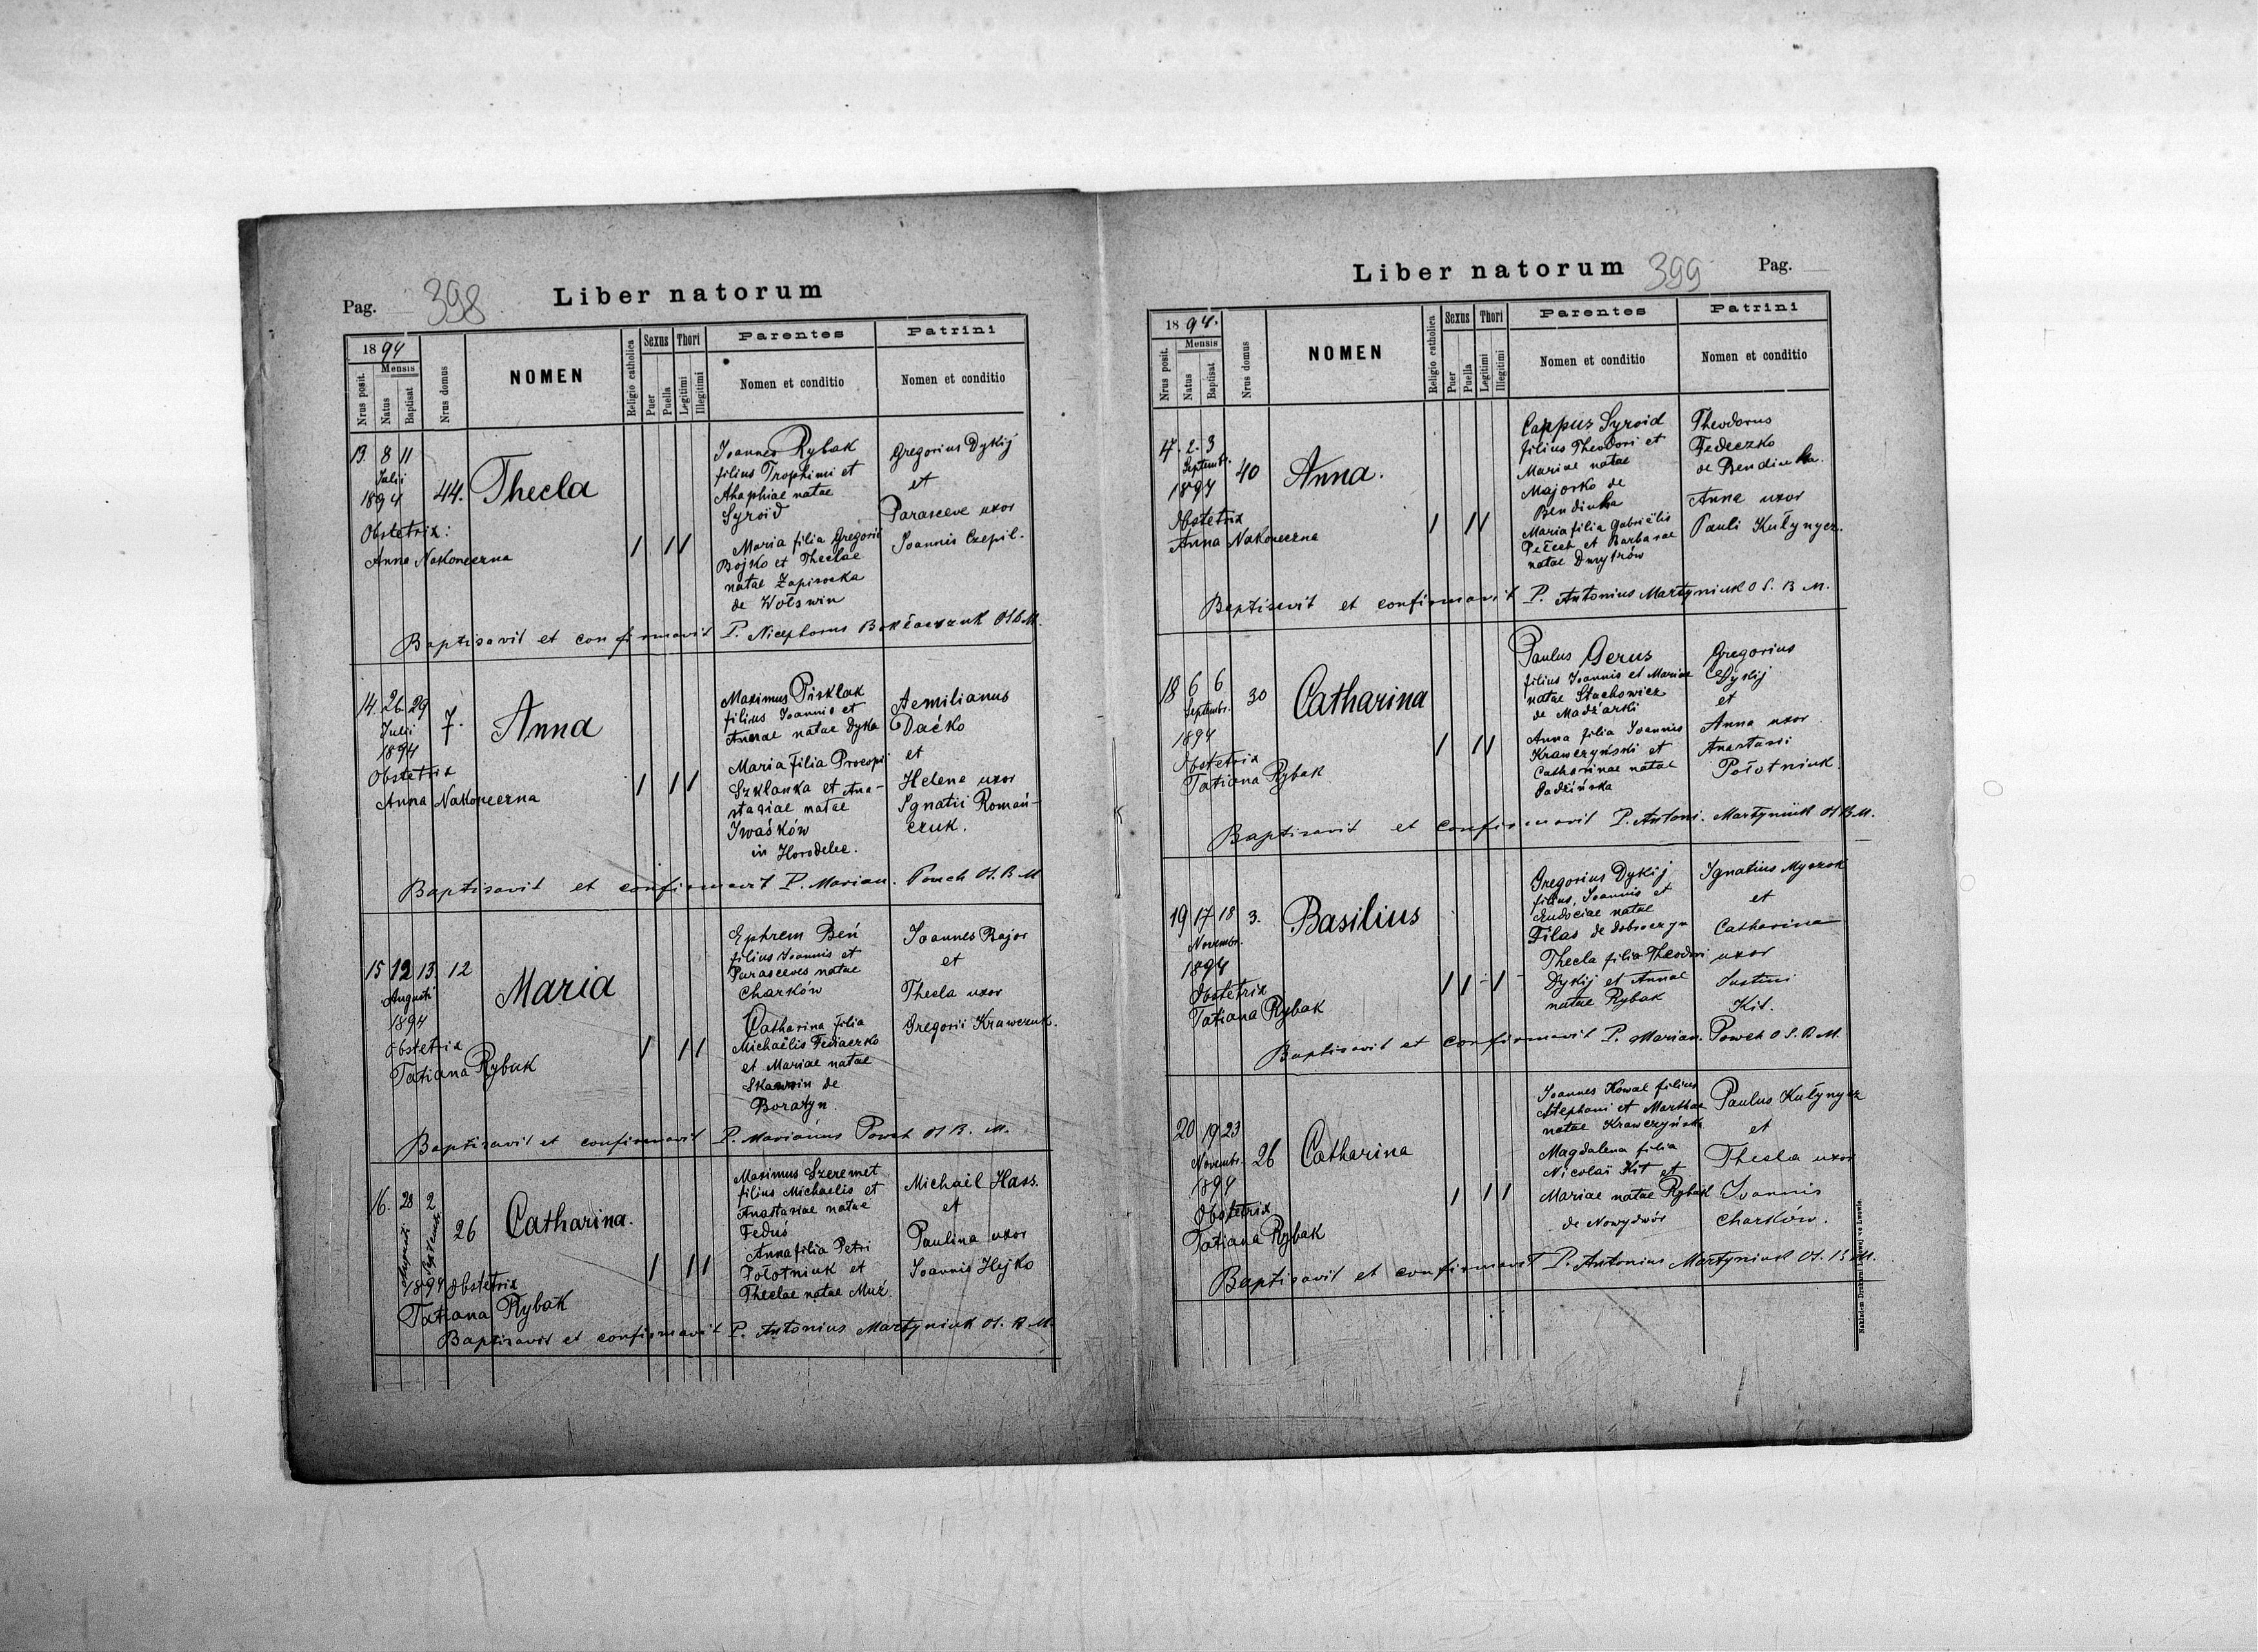 Pag. 398
Liber natorum
1894
Mensis
Nrus posit.
Natus
Baptisat
Nrus domus
NOMEN
Religio catholica
Sexus
Puer
Puella
Thori
Legitimi
Illegitimi
Parentes
Nomen et conditio
Patrini
Nomen et conditio
13. 8 11
Julii
1894
44.
Thecla
Obstetrix:
Anna Nakoneczna
Joannes Rybak
filius Trophimi et
Ahaphiae natae
Syroid
Maria filia Gregorii
Bojko et Theclae
natae Zapisocka
de Wolswin
Gregorius Dykij
et
Parasceve uxor
Joannis Czepil.
Baptisavit et confirmavit P. Nicephorus
14. 26. 29
Julii
1894
7.
Anna
Obstetrix
Anna Nakoneczna
Maximus Pisklak
filius Joannis et
Annae natae Dyka
Maria filia Procopi
Szklanka et Ana-
stasiae natae
Iwaśków
in Horodelec.
Aemilianus
Daćko
et
Helene uxor
Ignatii Romań-
czuk.
Baptisavit et confirmavit P. Marian. Powch O.S.B.M
15 12 13. 12
Augusti
1894
Maria
Obstetrix
Tatiana Rybak
Ephrem Beń
filius Joannis et
Parasceves natae
Charków
Catharina filia
Michaëlis Fediaczko
et Mariae natae
de
Boratyn.
Joannes Bajor
et
Thecla uxor
Gregorii Krawczuk.
Baptisavit et confirmavit P. Marianus Powch O.S.B.M.
16. 28 2
Augusti Septembr.
26
Catharina.
1894 Obstetrix
Tatiana Rybak
Maximus Szeremet
filius Michaelis et
Anastasiae natae
Feduś
Anna filia Petri
Połotniuk et
Theclae natae Muż.
Michaël Hass.
et
Paulina uxor
Joannis Hejko
Baptisavit et confirmavit P. Antonius Martyniuk O.S.B.M.
Liber natorum 399 Pag.
1894.
Mensis
Nrus posit.
Natus
Baptisat
Nrus domus
NOMEN
Religio catholica
Sexus
Puer
Puella
Thori
Legitimi
Illegitimi
Parentes
Nomen et conditio
Patrini
Nomen et conditio
17. 2. 3
Septembr.
1894
40
Anna.
Obstetrix
Anna Nakoneczna
Syroid
filius Theodori et
Mariae natae
Majorko de
Bendiucha
Maria filia Gabriëlis
Pełech et Barbarae
natae Dmytrów
Theodorus
Fedeczko
de Bendiucha.
Anna uxor
Pauli Kułynycz.
Baptisavit et confirmavit P. Antonius Martyniuk O.S.B.M.
18 6 6
Septembr.
1894
30
Catharina
Obstetrix
Tatiana Rybak
Paulus Gerus
filius Joannis et Mariae
natae Stachowicz
de Madżarki
Anna filia Joannis
Krawczyński et
Catharinae natae
Gregorius
Dykij
et
Anna uxor
Anastasii
Połotniuk.
Baptisavit et confirmavit P. Antoni. Martyniuk O.S.B.M.
19 17 18 3.
Novembr.
1894
Basilius
Obstetrix
Tatiana Rybak
Gregorius Dykij
filius Joannis et
Eudociae natae
Filas de Dobroczyn
Thecla filia Theodori
Dykij et Annae
natae Rybak
Ignatius Myszok
et
Catharina
uxor
Justini
Kit.
Baptisavit et confirmavit P. Marian. Powch O.S.B.M.
20 19 23
Novembr.
1894
26
Catharina
Obstetrix
Tatiana Rybak
Joannes Kowal filius
Stephani et Marthae
natae Krawczyńska
Magdalena filia
Nicolai Kit et
Mariae natae Rybak
de Nowydwór
Paulus Kułynycz
et
Thecla uxor
Joannis
Charków.
Baptisavit et confirmavit P. Antonius Martyniuk O.S.B.M.
Nakładem Drukarni Ludowej we Lwowie.